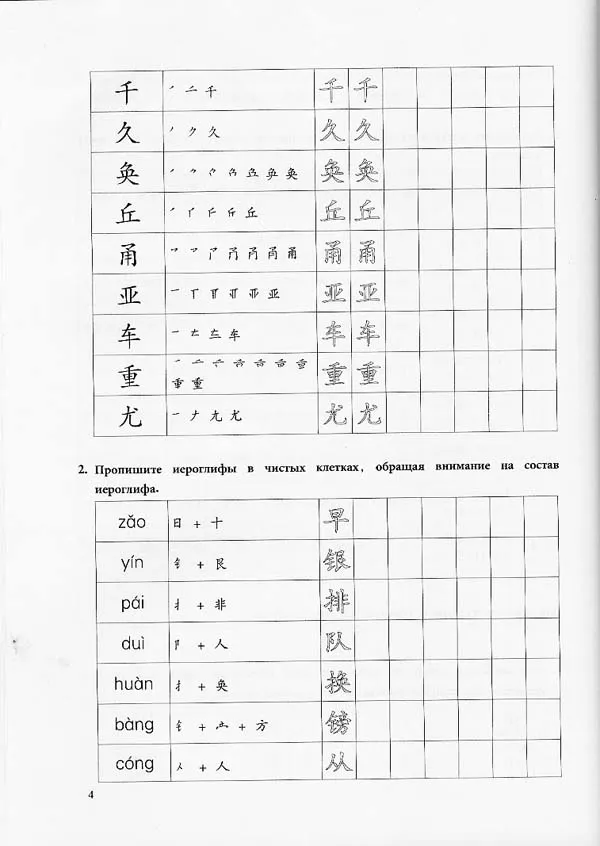 千 ㇒ 二 千 千 千
久 ㇒ ク 久 久 久
奂 奂 奂 奂
丘 丘 丘 丘
甬 甬 甬 甬
亚 一 丅 亚 亚 亚
车 一 车 车 车
重 重
重 重 重 重
尤 一 ナ 尢 尤 尤 尤
2. Пропишите иероглифы в чистых клетках, обращая внимание на состав
иероглифа.
zǎo 日 + 十 早
yín 钅 + 艮 银
pái 扌 + 非 排
duì 阝 + 人 队
huàn 扌 + 奂 换
bàng 钅 + 产 + 方 镑
cóng 人 + 人 从
4